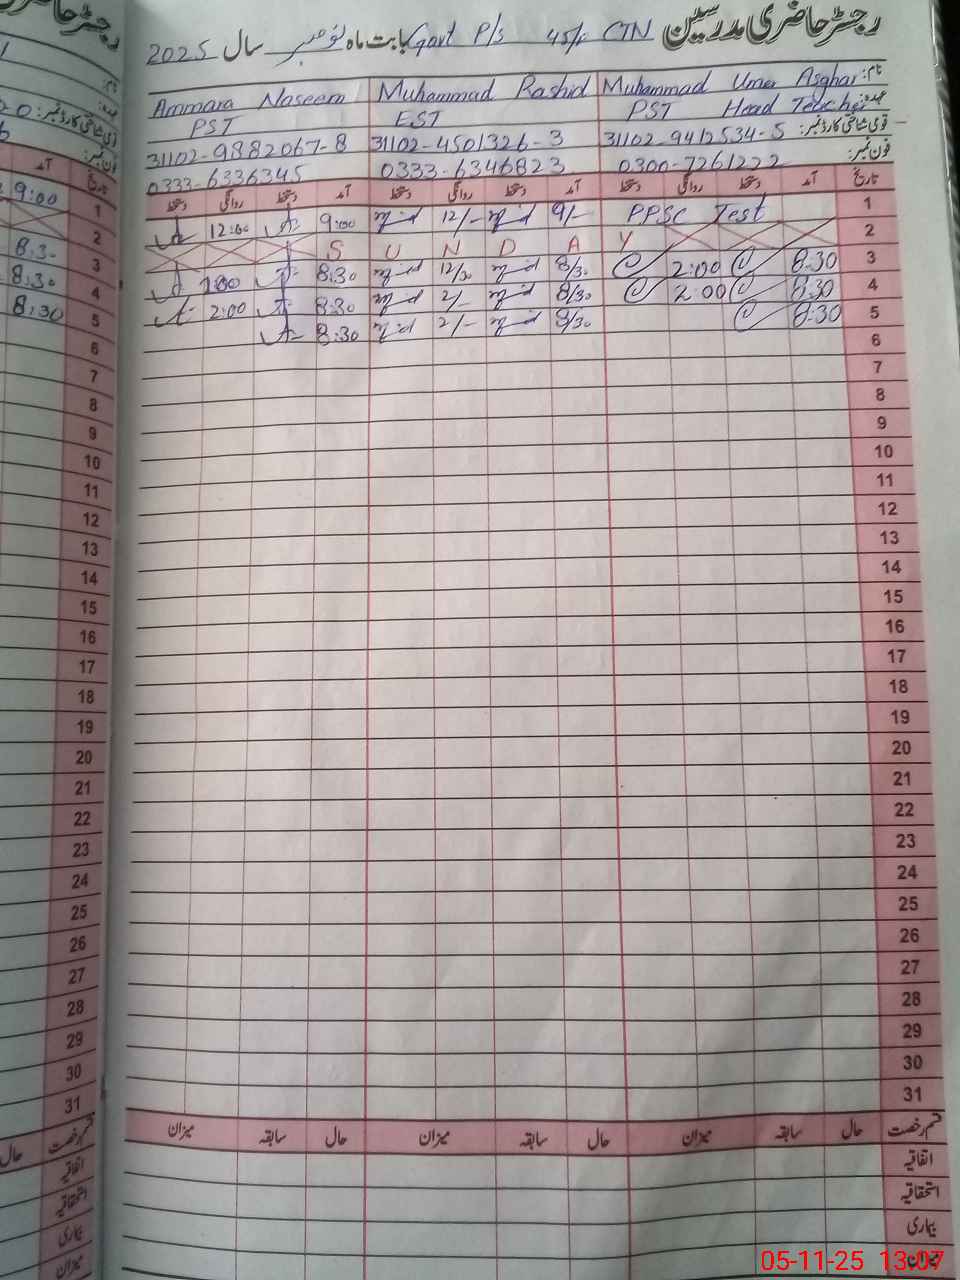 رجسٹر حاضری مدرسین Govt P/S 45/ CTN بابت ماہ نومبر سال 2025
نام: Muhammad Umar Asghar Muhammad Rashid Ammara Naseem
عہدہ: PST Head Teacher EST PST
قومی شناختی کارڈ نمبر: 31102-9412534-5 31102-4501326-3 31102-9882067-8
فون نمبر: 0300-7261222 0333-6346823 0333-6336345
تاریخ آمد دستخط روانگی دستخط آمد دستخط روانگی دستخط آمد دستخط روانگی دستخط
1 PPSC Test 9/- 12/- 9:00 12:00
2 S U N D A Y
3 8:30 2:00 8/30 12/30 8:30
4 8:30 2:00 8/30 2/- 8:30 2:00
5 8:30 8/30 2/- 8:30
6
7
8
9
10
11
12
13
14
15
16
17
18
19
20
21
22
23
24
25
26
27
28
29
30
31
قسم رخصت حال سابقہ میزان حال سابقہ میزان حال سابقہ میزان
اتفاقیہ
استحقاقیہ
بیماری
میزان
رجسٹر حاضری
نام:
عہدہ:
قومی شناختی کارڈ نمبر:
فون نمبر:
تاریخ آمد
1 9:00
2
3 8:30
4 8:30
5 8:30
6
7
8
9
10
11
12
13
14
15
16
17
18
19
20
21
22
23
24
25
26
27
28
29
30
31
قسم رخصت حال
اتفاقیہ
استحقاقیہ
بیماری
میزان
05-11-25 13:07